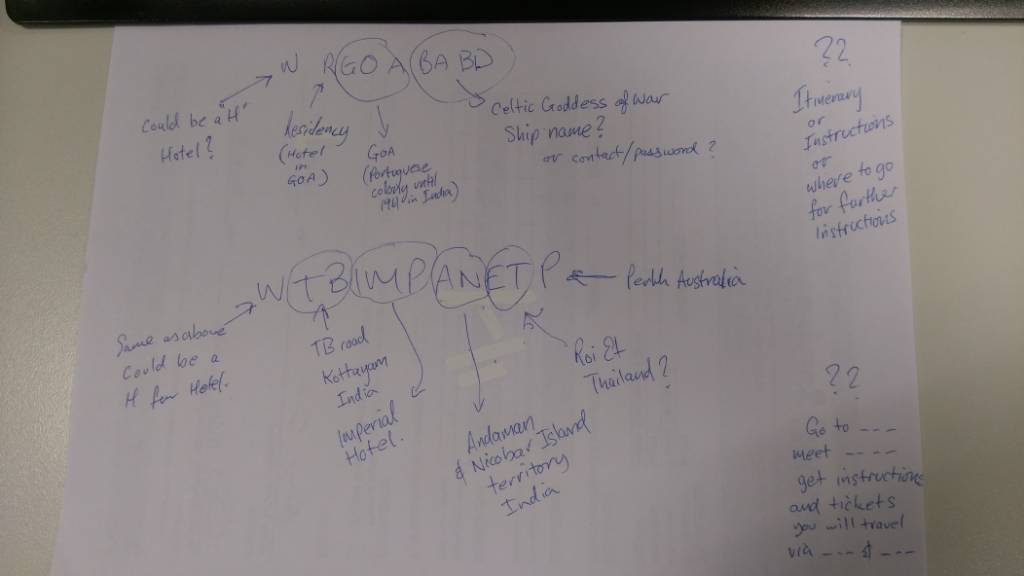 W RGOA BABD
Could be a "H"
Hotel?
Residency
(Hotel
in
GOA)
GOA
(Portuguese
colony until
1961 in India)
Celtic Goddess of War
Ship name?
or contact/password?
??
Itinerary
or
Instructions
or
where to go
for further
instructions
WTBIMPANETP
Perth Australia
Same as above
Could be a
H for Hotel.
TB road
Kottayam
India
Imperial
Hotel.
Andaman
& Nicobar Island
territory
India
Roi Et
Thailand?
??
Go to ---
meet ----
get instructions
and tickets
you will travel
via --- & ---